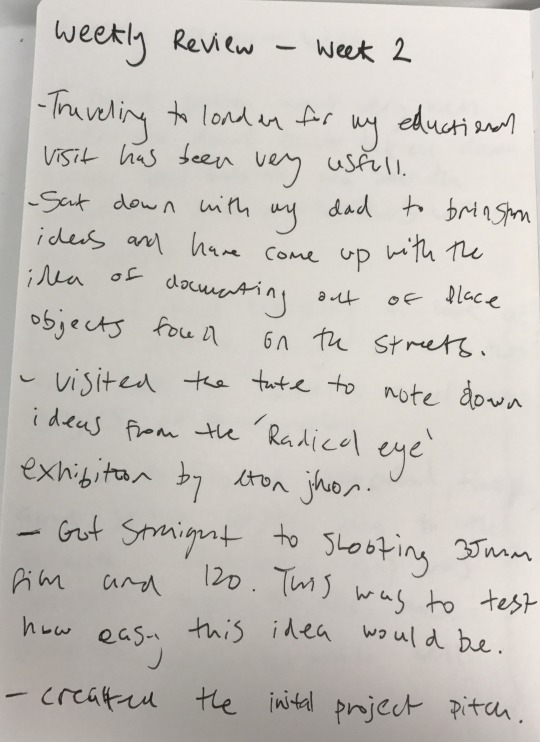 Weekly Review - Week 2
- Traveling to london for my eductional
visit has been very usfull.
- Sat down with my dad to brinstorm
ideas and have come up with the
idea of documenting out of place
objects found on the streets.
- visited the tate to note down
ideas from the 'Radical eye'
exhibition by elton jhon.
- Got straight to shooting 35mm
film and 120. This was to test
how easy this idea would be.
- created the inital project pitch.